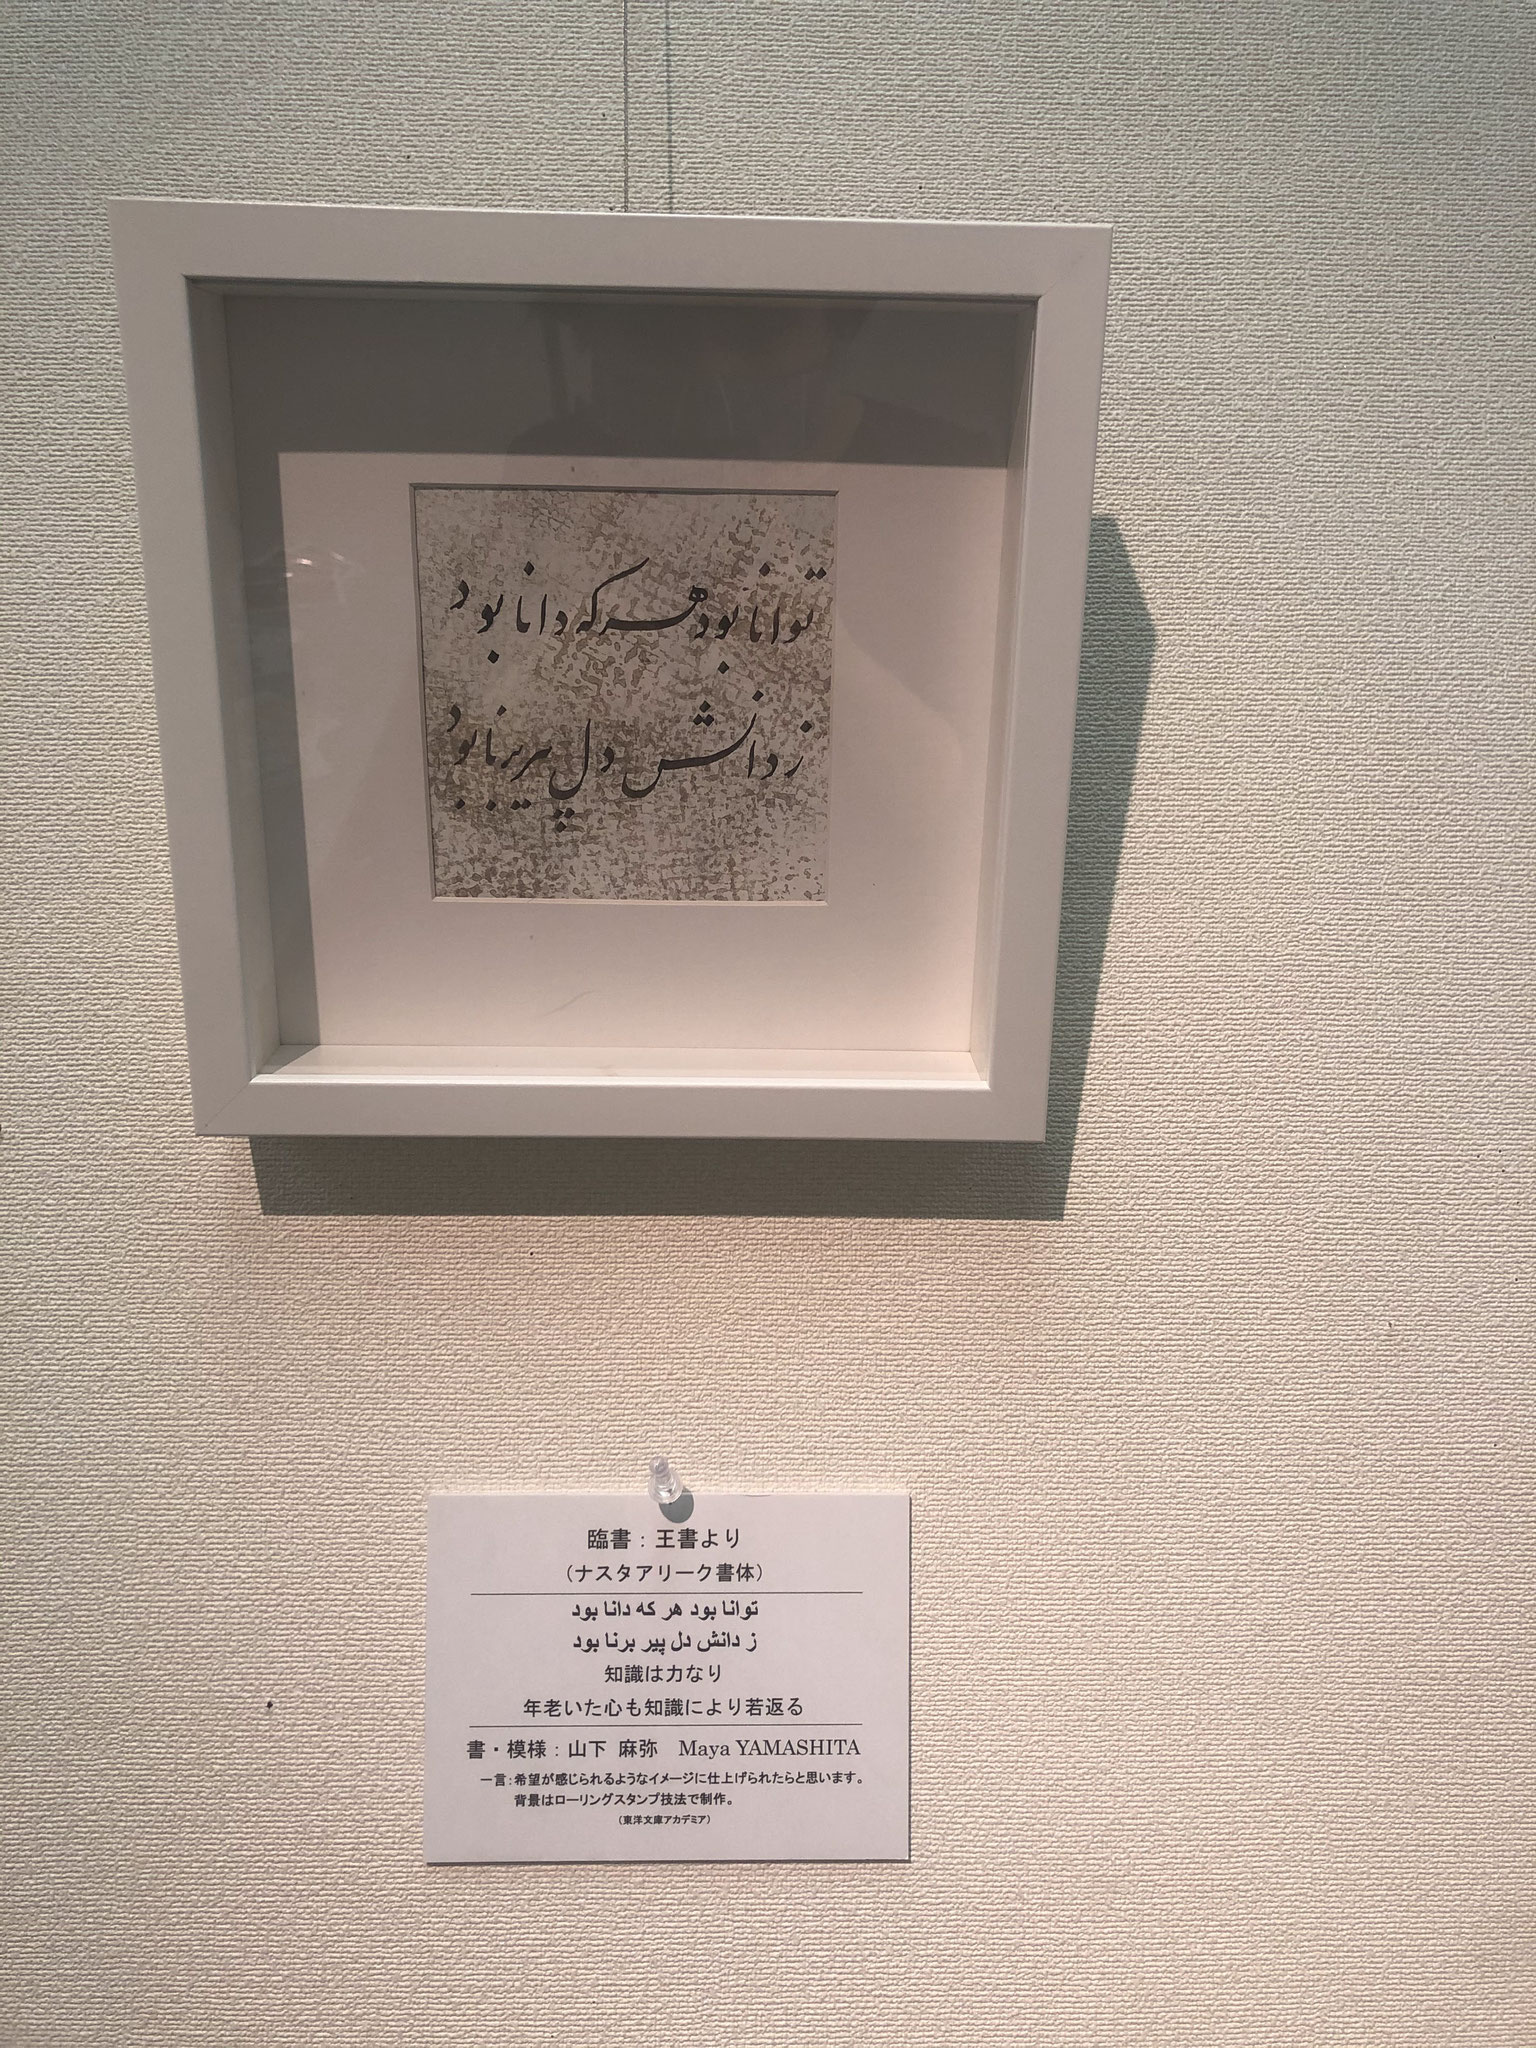 توانا بود هر که دانا بود
ز دانش دل پیر برنا بود
臨書：王書より
（ナスタアリーク書体）
توانا بود هر که دانا بود
ز دانش دل پیر برنا بود
知識は力なり
年老いた心も知識により若返る
書・模様：山下 麻弥 Maya YAMASHITA
一言：希望が感じられるようなイメージに仕上げられたらと思います。
背景はローリングスタンプ技法で制作。
（東洋文庫アカデミア）